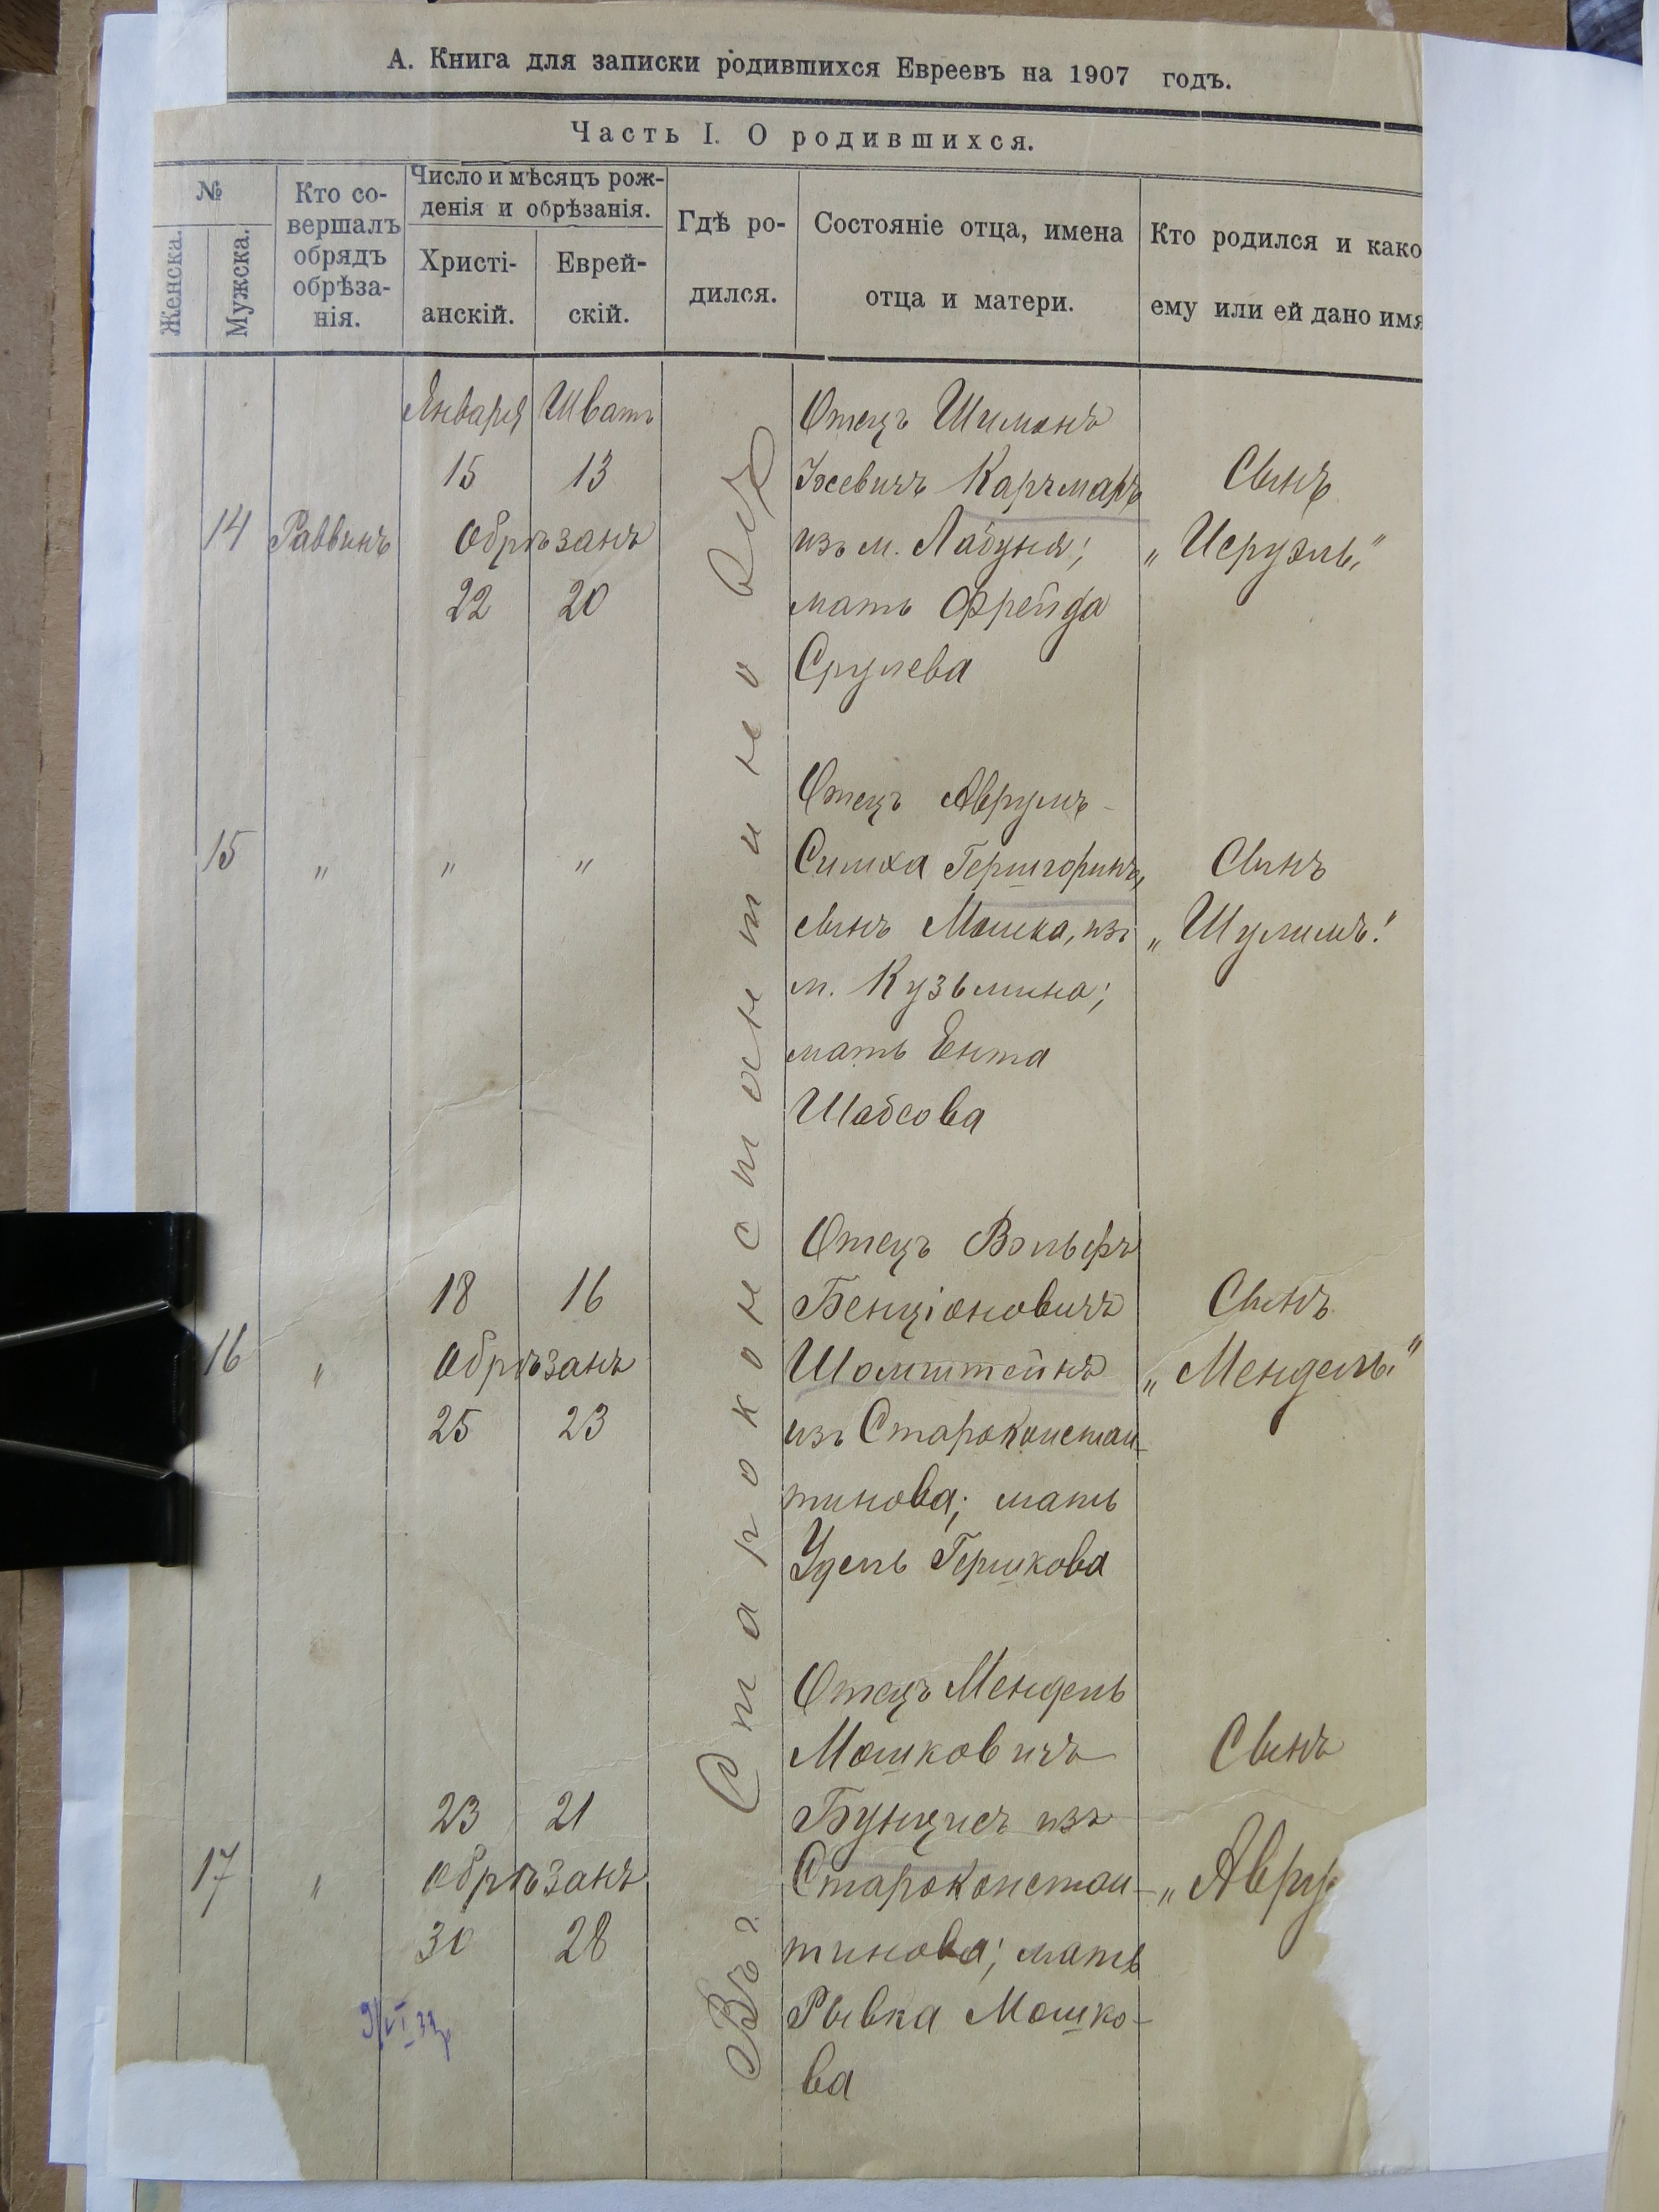 А. Книга для записки родившихся Евреевъ на 1907 годъ.
Часть I. О родившихся.
№
Женска.
Мужска.
Кто со-
вершалъ
обрядъ
обрѣза-
нія.
Число и мѣсяцъ рож-
денія и обрѣзанія.
Христі-
анскій.
Еврей-
скій.
Гдѣ ро-
дился.
Состояніе отца, имена
отца и матери.
Кто родился и како
ему или ей дано имя
Въ г. Староконстантиновѣ
14
Раввинъ
Января Шватъ
15 13
Обрѣзанъ
22 20
Отецъ Шимонъ
Іосевичъ Карчмаръ
изъ м. Лабуня;
мать Фрейда
Срулева
Сынъ
„Исруэль“
15
„
„ „
Отецъ Аврумъ-
Симха Гершгоринъ,
сынъ Мошка, изъ
м. Кузьмина;
мать Ента
Шабсова
Сынъ
„Шулимъ“
16
„
18 16
Обрѣзанъ
25 23
Отецъ Вольфъ
Бенціоновичъ
Шомштейнъ
изъ Староконстан-
тинова; мать
Удель Гершкова
Сынъ
„Мендель“
17
„
23 21
Обрѣзанъ
30 28
Отецъ Мендель
Мошковичъ
Бунцисъ изъ
Староконстан-
тинова; мать
Рывка Мошко-
ва
Сынъ
„Авру